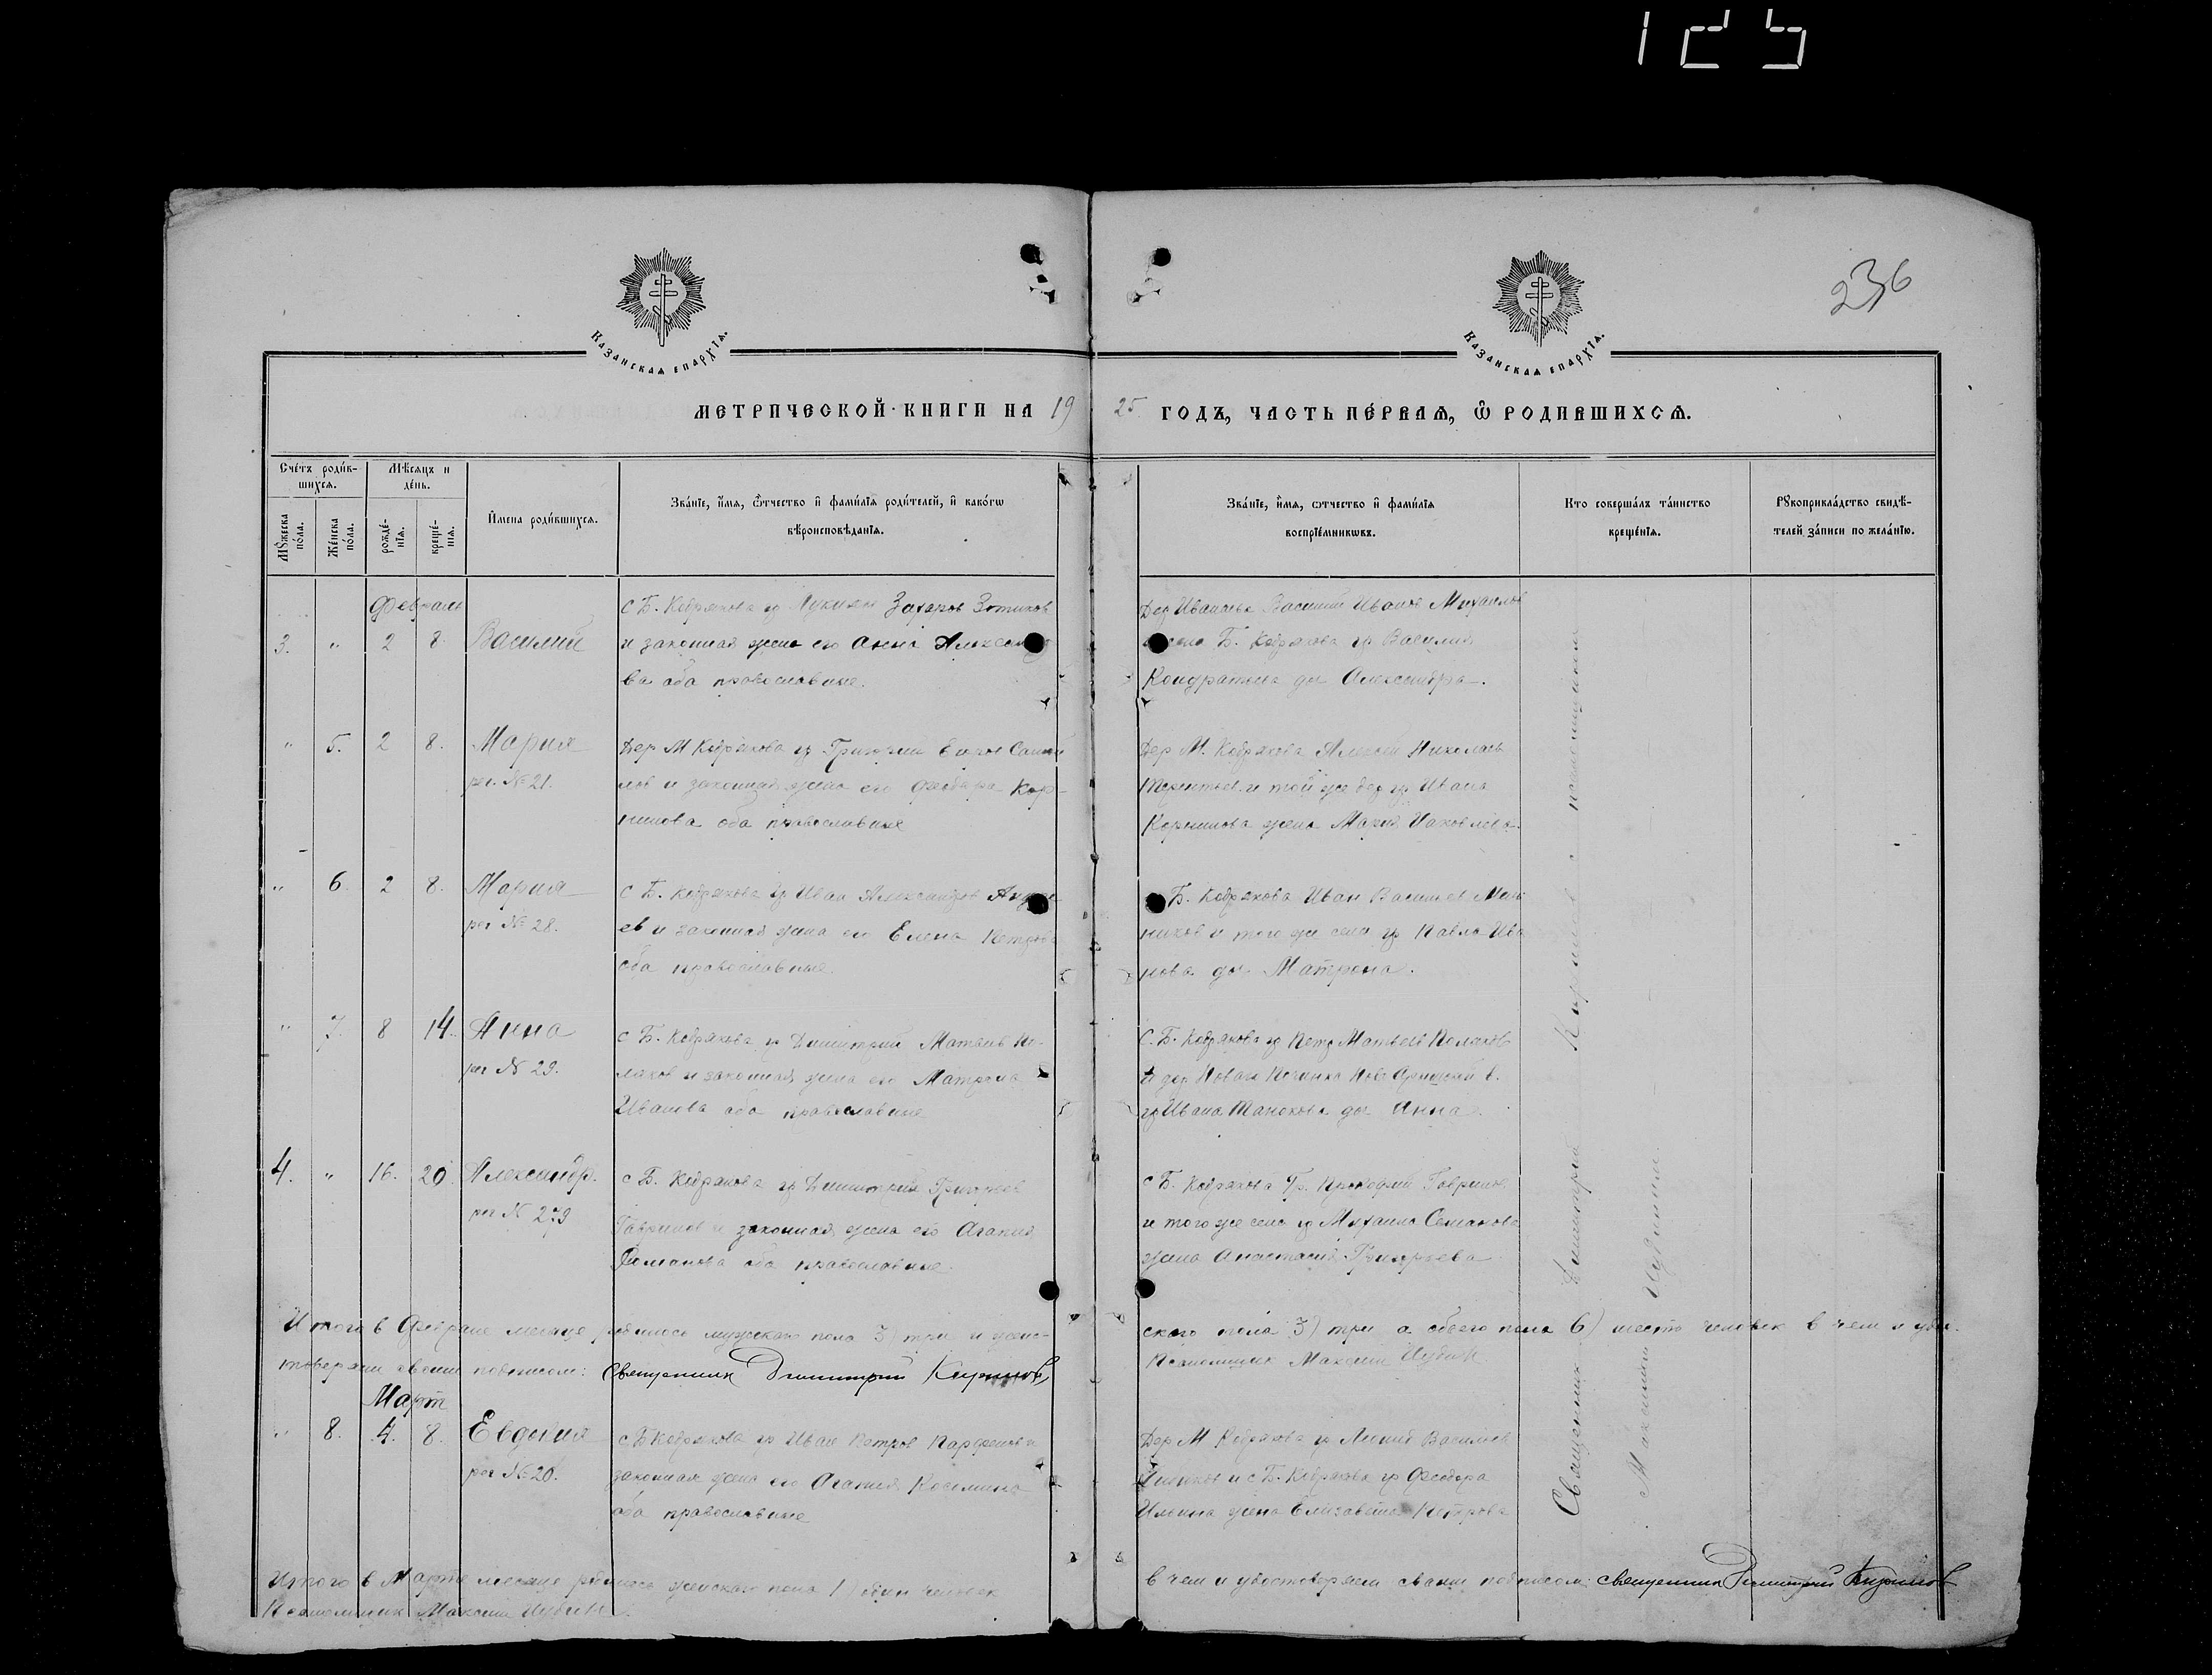 125
236
Казанская епархїѧ.
Казанская епархїѧ.
МЕТРИЧЕСКОЙ КНИГИ НА 1925 ГОДЪ, ЧАСТЬ ПЕ́РВАѦ, Ѽ РОДИВШИХСѦ.
Сче́тъ роди́в-
шихсѧ.
Мꙋ́жеска по́ла.
Же́нска по́ла.
Мѣ́сѧцъ и
де́нь.
рожде́-
нїѧ.
креще́-
нїѧ.
И҆мена роди́вшихсѧ.
Зва́нїе, и҆́мѧ, ѻ҆́тчество и҆ фами́лїѧ роди́телей, и҆ како́гѡ
вѣроисповѣ́данїѧ.
Зва́нїе, и҆́мѧ, ѻтчество и҆ фами́лїѧ
воспрїе́мникѡвъ.
Кто соверша́лъ та́инство
креще́нїѧ.
Рꙋкоприкла́дство свидѣ́-
телей за́писи по жела́нїю.
Февраль
3. " 2 8. Василий
с Б. Кобрякова гр Лукиян Захаров Зотиков
и законная жена его Анна Александ
ва оба православные.
Дер Ивановка Василий Иванов Михайлов
села Б. Кобрякова гр Василия
Кондратьева дч Александра.
" 5. 2 8. Мария
рег. № 21.
Дер М Кобрякова гр Григорий
и законная жена его Феодора Кор-
нилова оба православные
Дер М. Кобрякова Алексей Николаев
Терентьев и той же дер гр Ивана
Корнилова жена Мария Иаковлева.
" 6 2 8. Мария
рег № 28.
с Б. Кобрякова гр Иван Александров Андре
ев и законная жена его Елена Петрова
оба православные.
Б. Кобрякова Иван Васильев
и того же села гр Павла Ива
нова дч Матрона.
" 7. 8 14. Анна
рег № 29.
с Б. Кобрякова гр Димитрий Матвеев По-
ляков и законная жена его Матрона
Иванова оба православные
С. Б. Кобрякова гр Петр Матвеев Поляков
и дер Новаго Починка
гр Ивана дч Анна.
4. " 16. 20. Александр.
рег №
с Б. Кобрякова гр Димитрий Григорьев
Гаврилов и законная жена его Агапия
Романова оба православные.
с Б. Кобрякова Гр. Прокофий Гаврилов
и того же села гр Михаила Семакова
жена Анастасия Григорьева
Итого в Феврале месяце родилось мужскаго пола 3) три и жен-
ского пола 3) три а обоего пола 6) шесть человек в чем и удос-
товеряем своим подписом: Священник Димитрий Кириллов,
Псаломщик Максим
Март
" 8. 4. 8. Евдокия
рег № 20.
с Б Кобрякова гр Иван Петров Парфенов и
законная жена его Агапия Козмина
оба православные
Дер М Кобрякова гр Василиев
и с Б. Кобрякова гр Феодора
Ильина жена Елизавета Петрова
Итого в Марте месяце родилось женскаго пола 1) один человек
в чем и удостоверяем своим подписом: священник Димитрий Кириллов
Псаломщик Максим
Священник Димитрий Кириллов с псаломщиком
Максимом